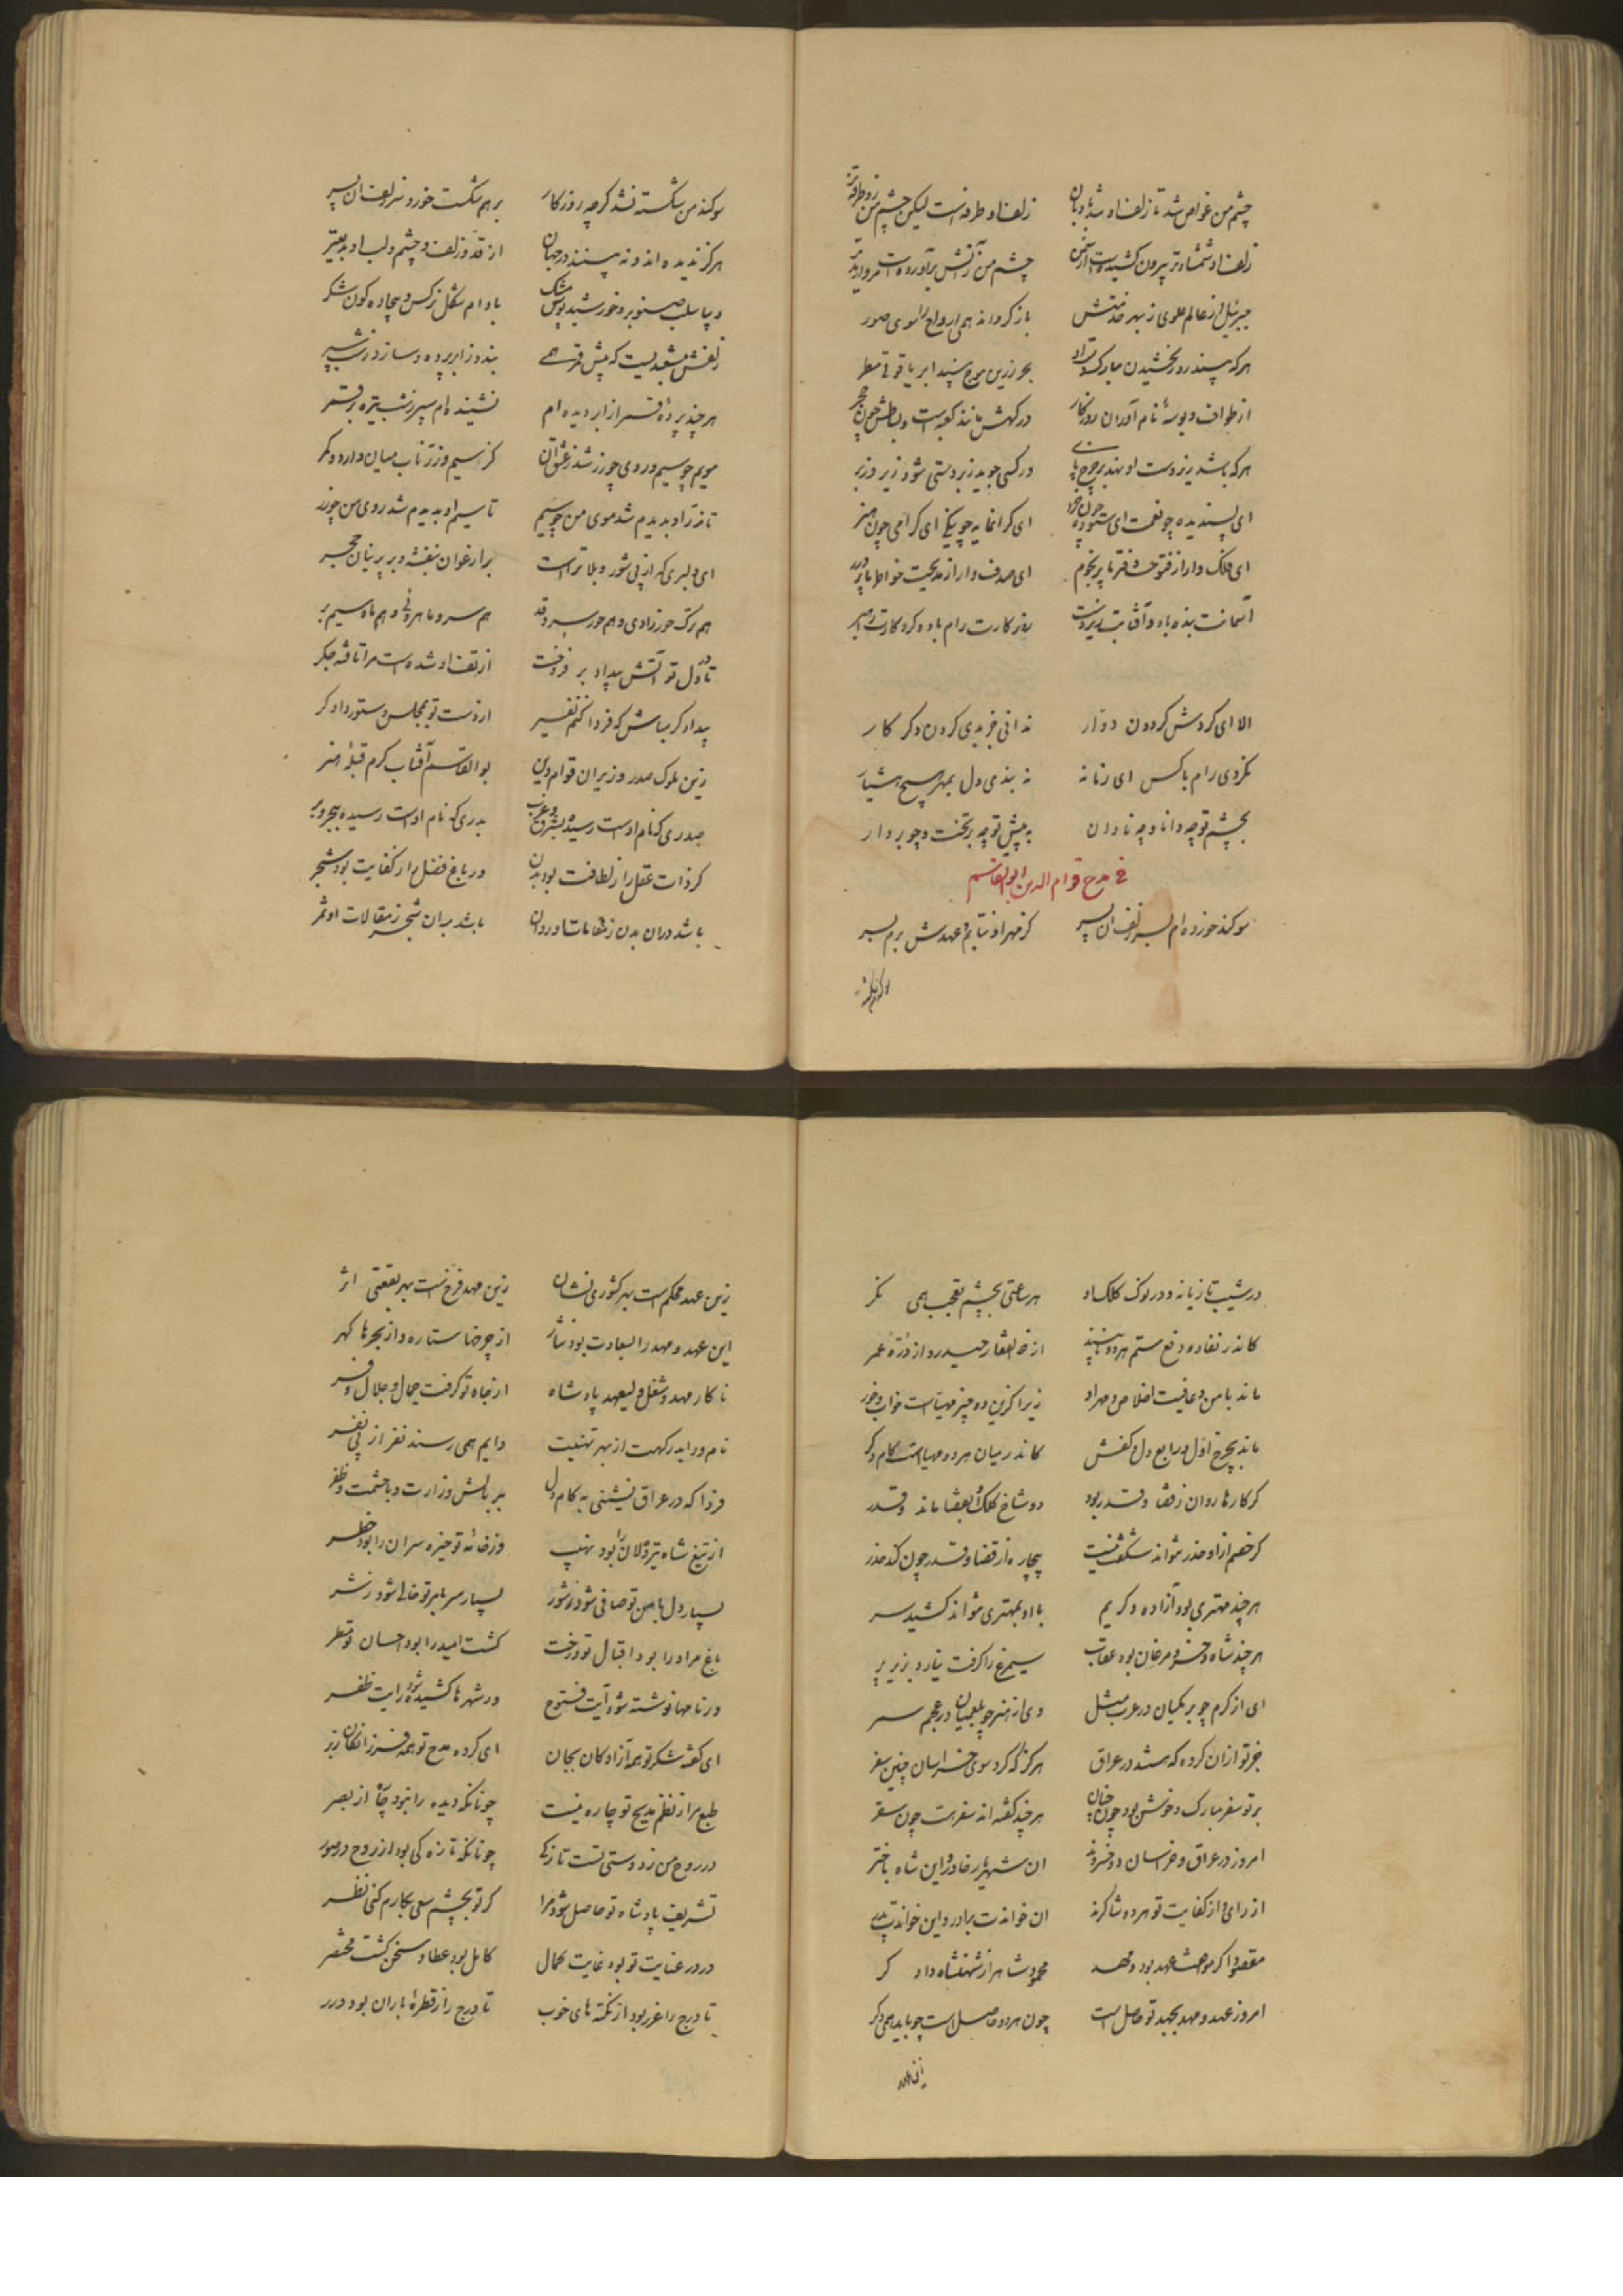 چشم من غواص شد تا زلف او شد بادبان زلف او طرفه است لیکن چشم من زو طرفه تر
زلف او شمشاد تر بیرون کشیده است از سمن چشم من ز آتش برآورده است مروارید تر
جبرئیل از عالم علوی ز بهر خدمتش باز گرداند همی ارواح را سوی صور
هر که بیند روز بخشیدن مبارک دست او بحر زرین موج بیند ابر یاقوتی مطر
از طواف و بوسه نام آوران روزگار درگهش مانند کعبه است و بساطش چون حجر
هر که باشد زیر دست او نهد بر چرخ پای ور کسی جوید زبردستی شود زیر و زبر
ای پسندیده چو نعمت ای ستوده چون خرد ای گرانمایه چو نیکی ای گرامی چون هنر
ای فلک وار از فتوحت دفتر ما پر نجوم ای صدف وار از مدیحت خواطر ما پر درر
آسمانت بنده باد و آفتابت زیردست روزگارت رام باد و کردگارت راهبر
الا ای گردش گردون دوار ندانی جز بدی کردن دگر کار
نگردی رام با کس ای زمانه نه بندی دل بمهر هیچ هشیار
بچشم تو چه دانا و چه نادان به پیش تو چه بر تخت و چه بر دار
فی مدح قوام الدین ابوالقاسم
سوگند خورده ام بسر زلف آن پسر کز مهر او نتابم و عهدش برم بسر
سوگند من شکسته نشد گرچه روزگار بر هم شکست خورد سر زلف آن پسر
هرگز ندیده اند و نه بینند در جهان از قد و زلف و چشم و لب او بدیع تر
دیبا سلب صنوبر و خورشید مشک پوش بادام شکل نرگس و بیجاده گون شکر
زلفش مشعبدیست که پیش قمر همی بندد ز ابر پرده و سازد ز شب سپر
هر چند پرده قمر از ابر دیده ام نشنیده ام سپر ز شب تیره بر قمر
مویم چو سیم و روی چو زر شد ز عشق آن کز سیم و زر ناب میان دارد و کمر
تا زر او بدیدم شد موی من چو سیم تا سیم او بدیدم شد روی من چو زر
ای دلبری که از پی شور و بلا تراست بر ارغوان بنفشه و بر پرنیان حجر
هم ترک حورزادی و هم حور سرو قد هم سرو ماهروئی و هم ماه سیم بر
تا در دل تو آتش بیداد بر فروخت از تف او شده است مرا تافته جگر
بیدادگر مباش که فردا کنم نفیر از دست تو بمجلس دستور دادگر
زین ملوک صدر وزیران قوام دین بوالقاسم آفتاب کرم قبله هنر
صدری که نام اوست رسیده بشرق و غرب بدری که نام اوست رسیده ببحر و بر
گر ذات عقل را ز لطافت بود بدن ور باغ فضل را ز کفایت بود شجر
باشد در آن بدن ز مقامات او روان باشد بر آن شجر ز مقالات او ثمر
در شیب تازیانه و در نوک کلک او هر ساعتی بچشم تعجب همی نگر
کاندر نفاد و دفع ستم هر دو نایبند از ذوالفقار حیدر و از دره عمر
ماند بامن و عافیت اخلاص و مهر او زیرا کزین دو چیز مهیاست خواب و خور
ماند بچرخ اول و رابع دل و کفش کاندر میان هر دو مهیاست کام و کر
گر کارها روان ز قضا و قدر بود دو شاخ کلک او بقضا ماند و قدر
گر خصم ازو حذر نتواند شگفت نیست بیچاره از قضا و قدر چون کند حذر
هر چند مهتری بود آزاده و کریم با او بمهتری نتواند کشید سر
هر چند شاه و خسرو مرغان بود عقاب سیمرغ را گرفت نیارد بزیر پر
ای از کرم چو برمکیان در عرب مثل وی از هنر چو بلعمیان در عجم سمر
جز تو از آن گروه که هستند در عراق هرگز که کرد سوی خراسان چنین سفر
بر تو سفر مبارک و خوش بود چون جنان هر چند گفته اند سفر هست چون سقر
امروز در عراق و خراسان دو خسروند آن شهریار خاور و این شاه باختر
از رای و از کفایت تو هر دو شاکرند آن خواندت برادر و این خواندت پدر
مقصود اگر مواصلت عهد بود و مهد
امروز عهد و مهد بجهد تو حاصل است چون هر دو حاصل است چه باید همی دگر
زین عهد محکم است بهر کشوری نشان زین مهد فرخ است بهر بقعتی اثر
این عهد و مهد را بسعادت بود نثار از چرخها ستاره و از بحرها گهر
تا کار مهد و شغل ولیعهد پادشاه از جاه تو گرفت جمال و جلال و فر
نام و را بدرگهت از بهر تهنیت دایم همی رسند نفر از پی نفر
فردا که در عراق نشینی به کام دل بر بالش وزارت و با حشمت و ظفر
از تیغ شاه تیره دلان را بود نهیب وز خامه تو خیره سران را بود خطر
بسیار دل بامن تو صافی شود ز شور بسیار سر بامر تو خالی شود ز شر
باغ مراد را بود اقبال تو درخت کشت امید را بود احسان تو مطر
در نامها نوشته شود آیت فتوح در شهرها کشیده شود رایت ظفر
ای گفته شکر تو همه آزادگان بجان ای کرده مدح تو همه فرزانگان ز بر
طبع مرا ز نظم مدیح تو چاره نیست چونانکه دیده را نبود چاره از بصر
در روح من ز دوستی تست تازگی چونانکه تازگی بود از روح در صور
تشریف پادشاه تو حاصل شود مرا گر تو بچشم سعی بکارم کنی نظر
در در عنایت تو بود غایت کمال کامل بود عطا و سخن گشت مختصر
تا درج را غرر بود از نکته های خوب تا درج را ز قطره باران بود درر